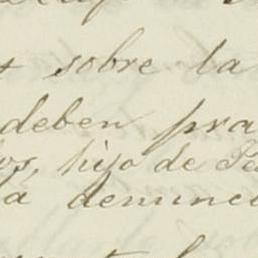 sobre la
deben pra
os, hijo de Pe
a denunci